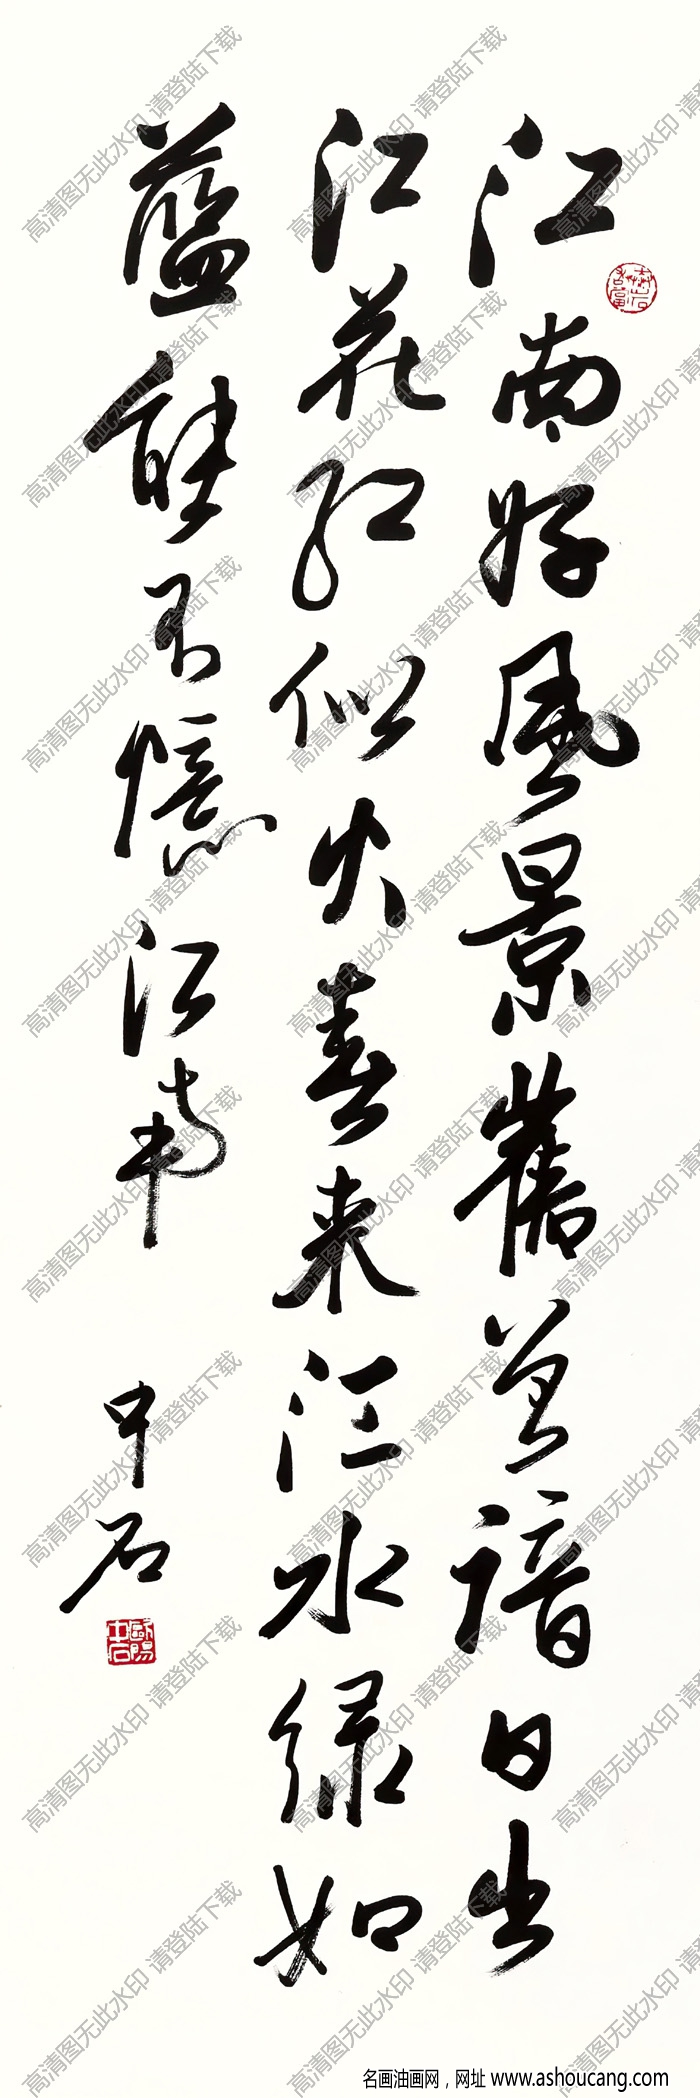 江南好風景舊曾諳日出
江花红似火春来江水绿如
藍能不憶江南
中石
歐陽中石
名画油画网，网址 www.ashoucang.com
高清图无此水印 请登陆下载